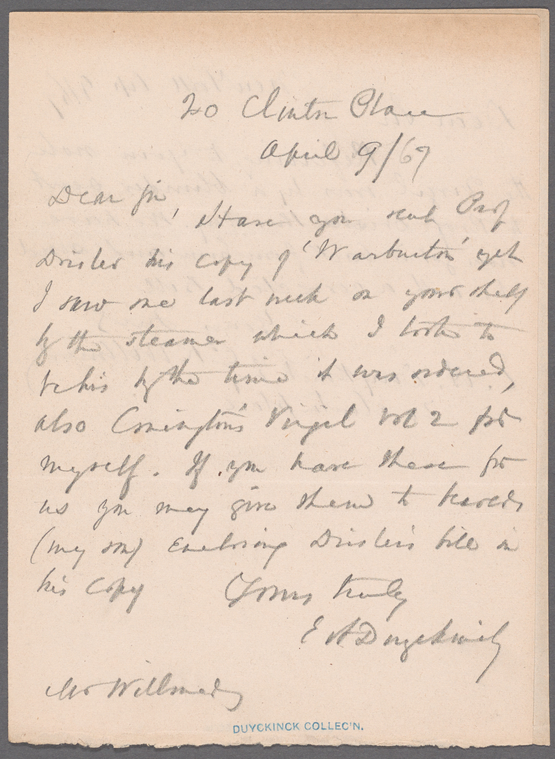 20 Clinton Place
April 9/67
Dear Sir, Have you sent Prof
Drisler his copy of 'Warburton' yet
I saw one last week on your shelf
by the steamer which I took to
be his by the time it was ordered,
also Conington's Virgil vol 2 for
myself. If you have these for
us you may give them to
(my son) Enclosing Drisler's bill in
his copy Yours truly
E A Duyckinck
Mr
DUYCKINCK COLLEC'N.